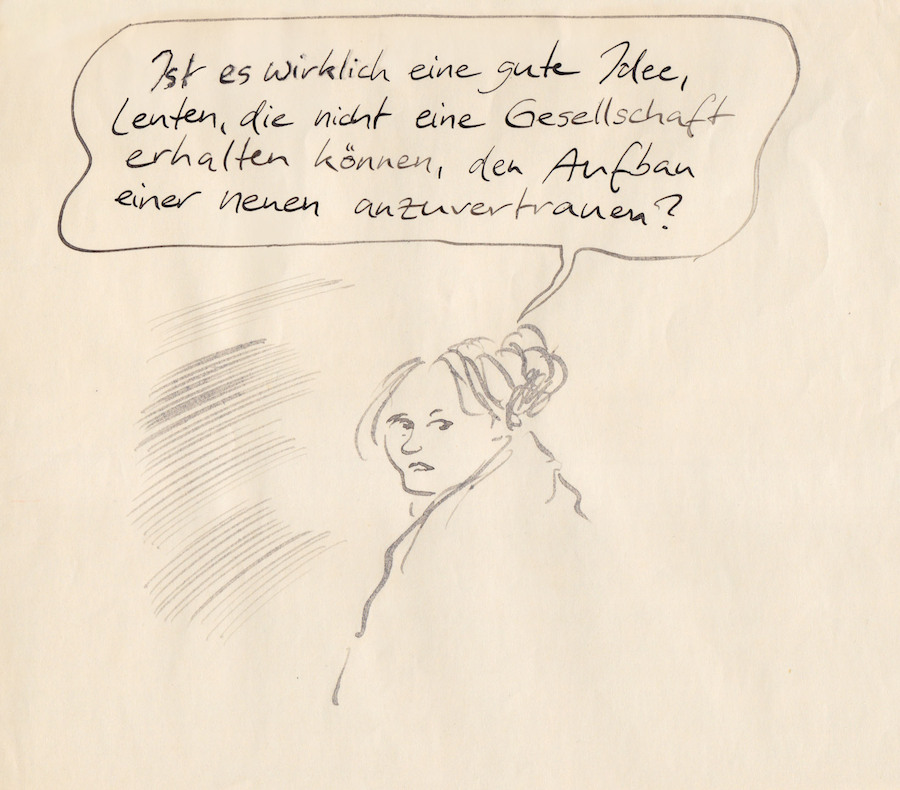 Ist es wirklich eine gute Idee,
Leuten, die nicht eine Gesellschaft
erhalten können, den Aufbau
einer neuen anzuvertrauen?